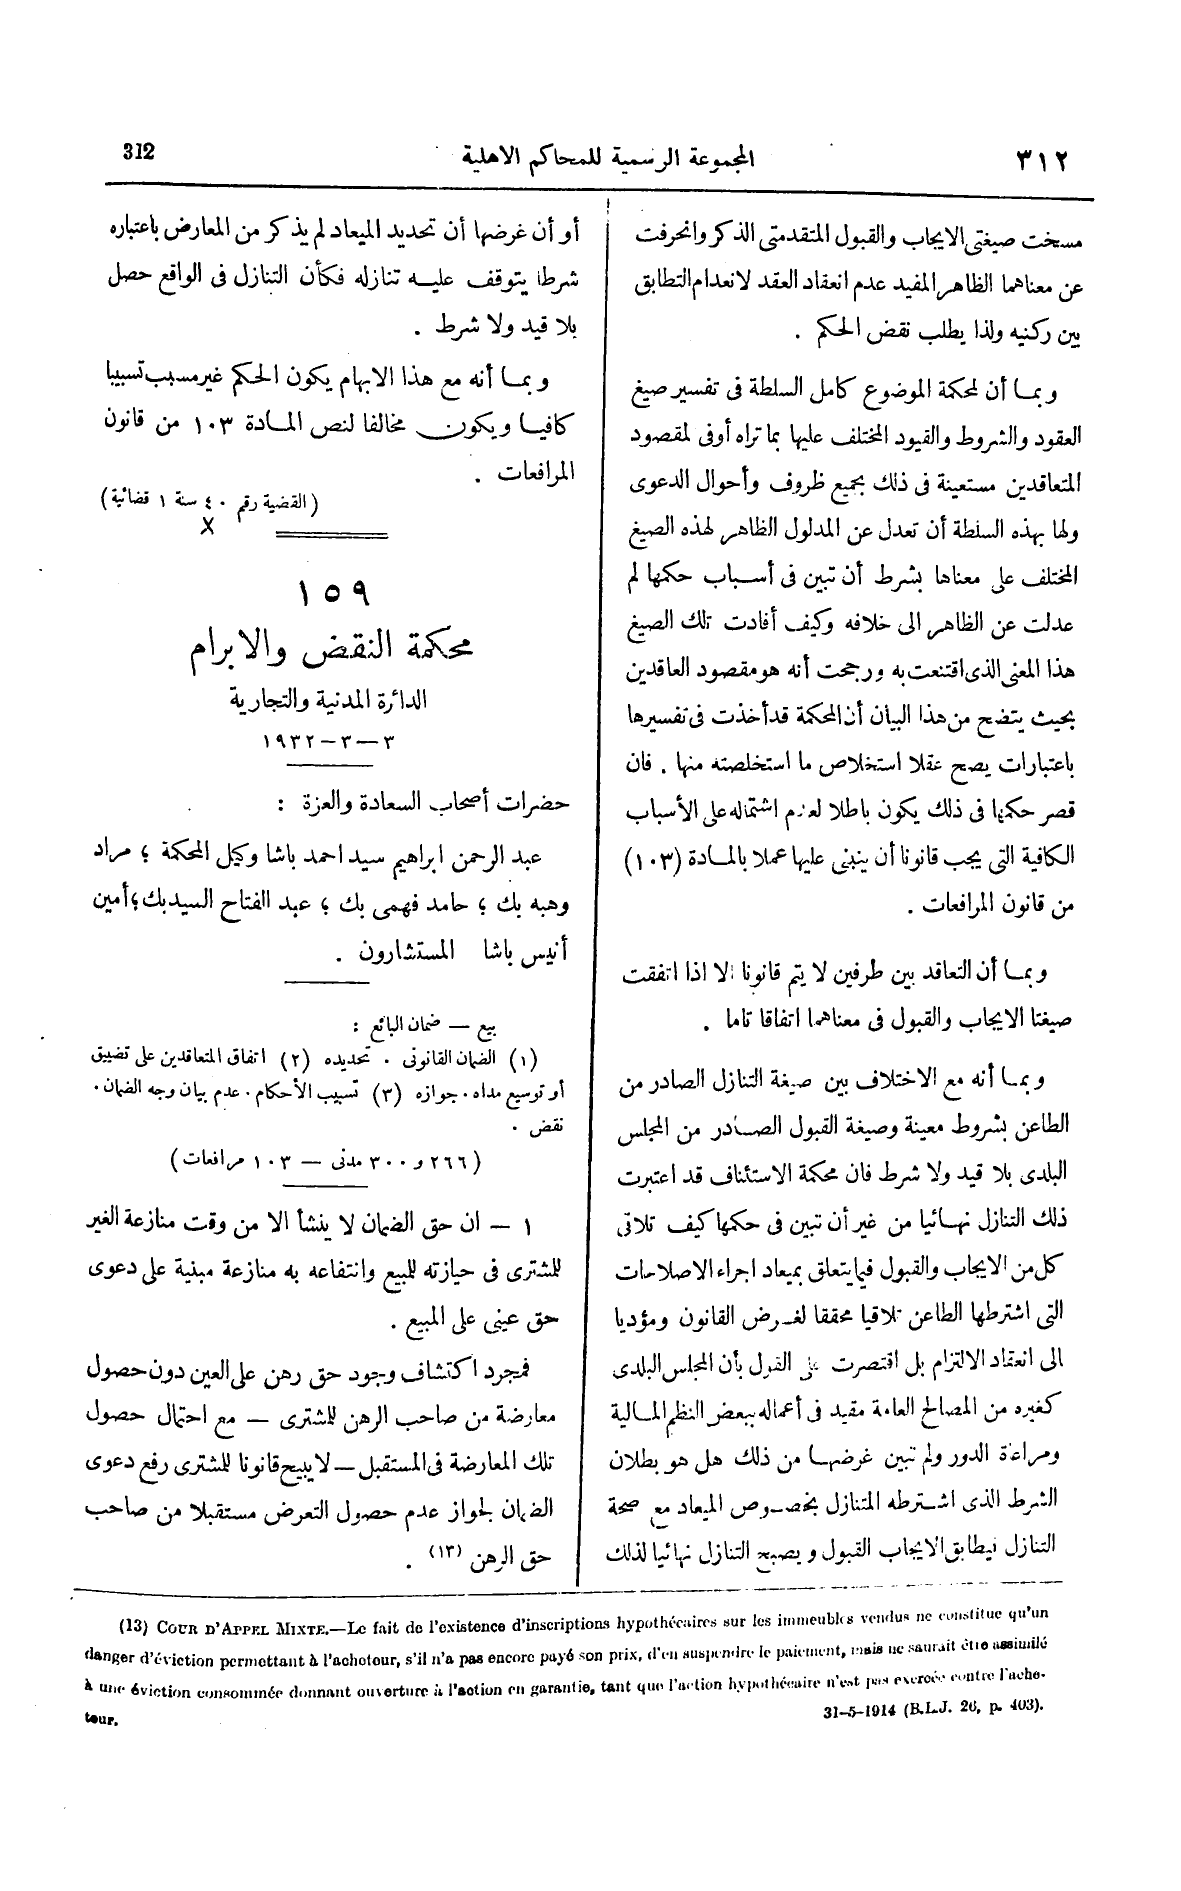 312
المجموعة الرسمية للمحاكم الاهلية
٣١٢
مسخت صيغتى الايجاب والقبول المتقدمتى الذكر وانحرفت
عن معناهما الظاهر المفيد عدم انعقاد العقد لانعدام التطابق
بين ركنيه ولذا يطلب نقض الحكم .
وبمـا أن لمحكمة الموضوع كامل السلطة فى تفسير صيغ
العقود والشروط والقيود المختلف عليها بما تراه أوفى لمقصود
المتعاقدين مستعينة فى ذلك بجميع ظروف وأحوال الدعوى
ولها بهذه السلطة أن تعدل عن المدلول الظاهر لهذه الصيغ
المختلف على معناها بشرط أن تبين فى أسـباب حكمها لم
عدلت عن الظاهر الى خلافه وكيف أفادت تلك الصيغ
هذا المعنى الذى اقتنعت به ورجحت أنه هو مقصود العاقدين
بحيث يتضح من هذا البيان أن المحكمة قد أخذت فى تفسيرها
باعتبارات يصح عقلا استخلاص ما استخلصته منها . فان
قصر حكمها فى ذلك يكون باطلا لعدم اشتماله على الأسباب
الكافية التى يجب قانونا أن ينبنى عليها عملا بالمـادة (١٠٣)
من قانون المرافعات .
وبمـا أن التعاقد بين طرفين لا يتم قانونا الا اذا اتفقت
صيغتا الايجاب والقبول فى معناهما اتفاقا تاما .
وبمـا أنه مع الاختلاف بين صيغة التنازل الصادر من
الطاعن بشروط معينة وصيغة القبول الصـادر من المجلس
البلدى بلا قيد ولا شرط فان محكمة الاستئناف قد اعتبرت
ذلك التنازل نهـائيا من غير أن تبين فى حكمها كيف تلاقى
كل من الايجاب والقبول فيما يتعلق بميعاد اجراء الاصلاحات
التى اشترطها الطاعن تلاقيا محققا لغـرض القانون ومؤديا
الى انعقاد الالتزام بل اقتصرت على القول بأن المجلس البلدى
كغيره من المصالح العامة مقيد فى أعماله ببعض النظم المـالية
ومراعاة الدور ولم تبين غرضهـا من ذلك هل هو بطلان
الشرط الذى اشـترطه المتنازل بخصـوص الميعاد مع صحة
التنازل فيطابق الايجاب القبول ويصبح التنازل نهائيا لذلك
أو أن غرضها أن تحديد الميعاد لم يذكر من المعارض باعتباره
شرطا يتوقف عليـه تنازله فكأن التنازل فى الواقع حصل
بلا قيد ولا شرط .
وبمـا أنه مع هذا الابهام يكون الحكم غير مسبب تسبيبا
كافيـا ويكون مخالفا لنص المـادة ١٠٣ من قانون
المرافعات .
(القضية رقم ٤٠ سنة ١ قضائية)
X
١٥٩
محكمة النقض والابرام
الدائرة المدنية والتجارية
٣ — ٣ — ١٩٣٢
حضرات أصحاب السعادة والعزة :
عبد الرحمن ابراهيم سيد احمد باشا وكيل المحكمة ؛ مراد
وهبه بك ؛ حامد فهمى بك ؛ عبد الفتاح السيد بك ؛ أمين
أنيس باشا المستشارون .
بيع — ضمان البائع :
(١) الضمان القانونى . تحديده (٢) اتفاق المتعاقدين على تضييق
أو توسيع مداه . جوازه (٣) تسبيب الأحكام . عدم بيان وجه الضمان .
نقض .
(٢٦٦ و ٣٠٠ مدنى — ١٠٣ مرافعات)
١ — ان حق الضمان لا ينشأ الا من وقت منازعة الغير
للمشترى فى حيازته للمبيع وانتفاعه به منازعة مبنية على دعوى
حق عينى على المبيع .
فمجرد اكتشاف وجود حق رهن على العين دون حصول
معارضة من صاحب الرهن للمشترى — مع احتمال حصول
تلك المعارضة فى المستقبل — لا يبيح قانونا للمشترى رفع دعوى
الضمان لجواز عدم حصول التعرض مستقبلا من صاحب
حق الرهن (١٣) .
(13) COUR D'APPEL MIXTE.—Le fait de l'existence d'inscriptions hypothécaires sur les immeubles vendus ne constitue qu'un
danger d'éviction permettant à l'acheteur, s'il n'a pas encore payé son prix, d'en suspendre le paiement, mais ne saurait être assimilé
à une éviction consommée donnant ouverture à l'action en garantie, tant que l'action hypothécaire n'est pas exercée contre l'ache-
teur. 31-5-1914 (B.L.J. 26, p. 403).